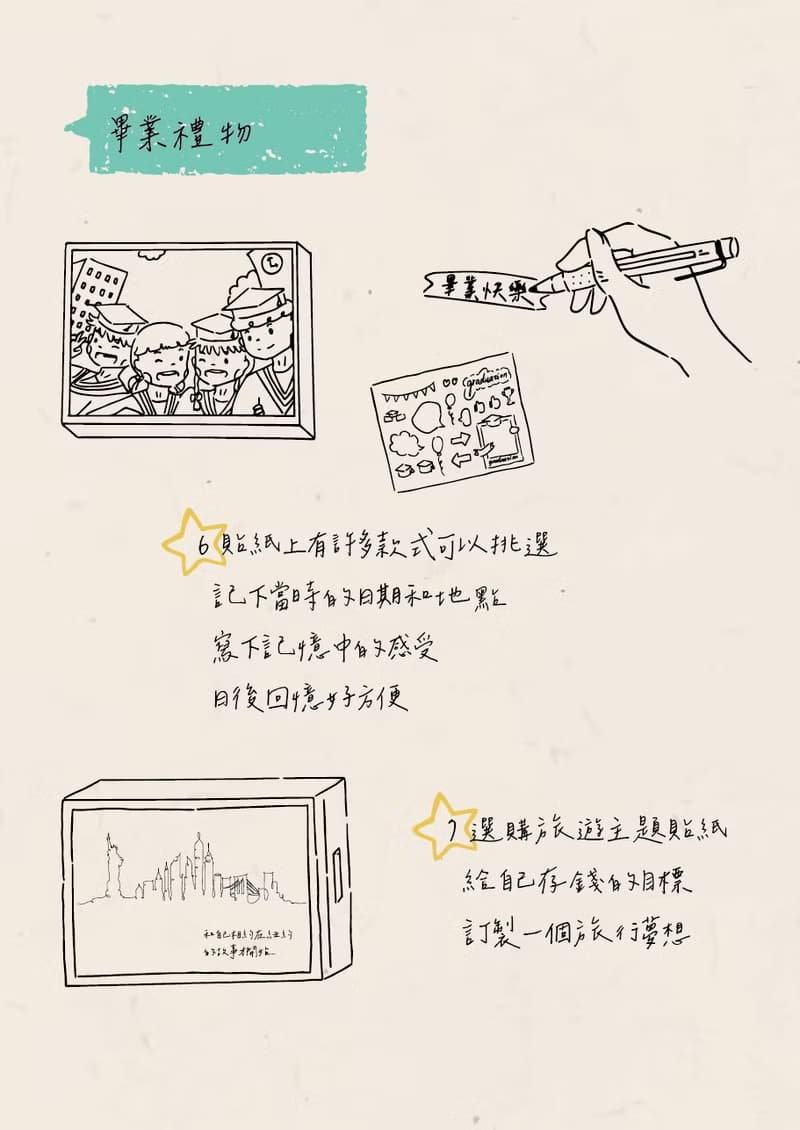 畢業禮物
畢業快樂
graduation
graduation
6 貼紙上有許多款式可以挑選
記下當時的日期和地點
寫下記憶中的感受
日後回憶好方便
7 選購旅遊主題貼紙
給自己存錢的目標
訂製一個旅行夢想
和自己相約在紐約
好故事才開始